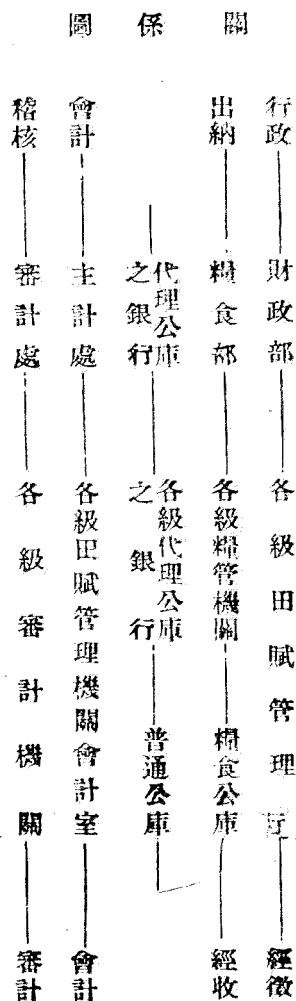 關係圖
行政——財政部——各級田賦管理——經徵
出納——糧食部——各級糧管機關——糧食公庫——經收
——代理公庫之銀行——各級代理公庫之銀行——普通公庫
會計——主計處——各級田賦管理機關會計室——會計
稽核——審計處——各級審計機關——審計